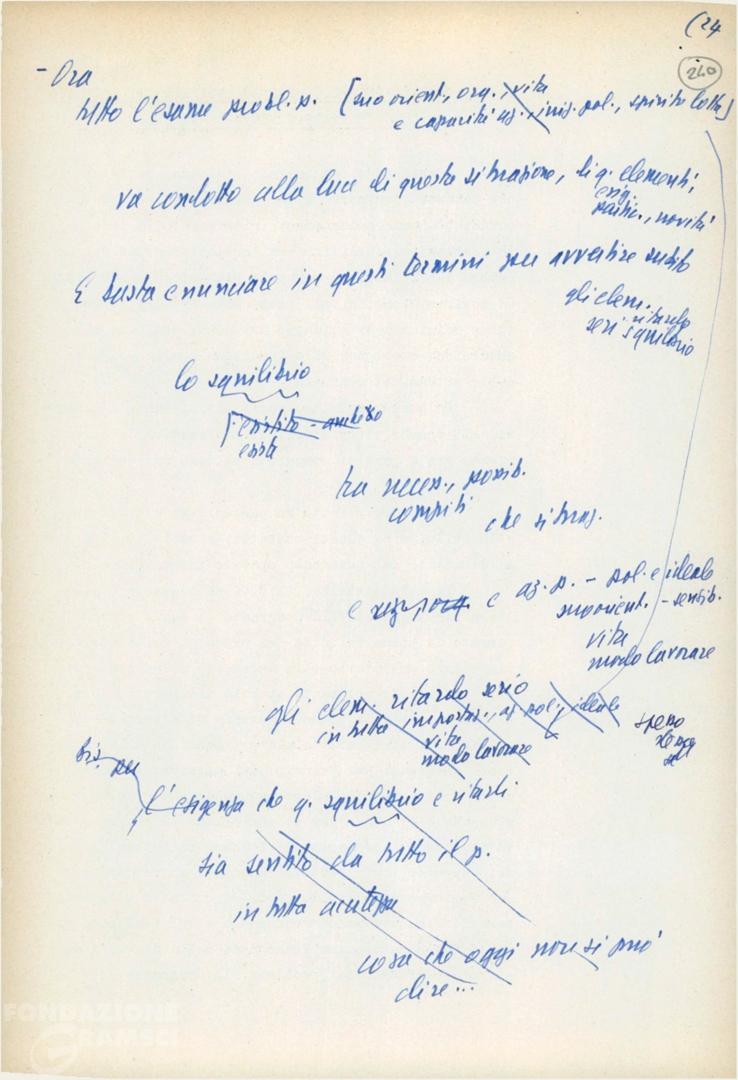 (24
240
- Ora
tutto l'esame probl. p. [suo orient., org., vita
e capacità az., iniz. pol., spirito lotta]
va condotto alla luce di questa situazione, di q. elementi,
esig.
partic., novità
E basta enunciare in questi termini per avvertire subito
gli elem.
seri ritardo
squilibrio
lo squilibrio
[esistito - anche
esiste
tra necess., possib.
compiti
che situaz.
e e az. p. - pol. e ideale
suo orient. - sensib.
vita
modo lavorare
gli elem. ritardo serio
in tutta importanz., az. pol. ideale
vita
modo lavorare
Bis. per
l'esigenza che q. squilibrio e ritardi
sia sentito da tutto il p.
in tutta acutezza
cosa che oggi non si può
dire...
FONDAZIONE
GRAMSCI